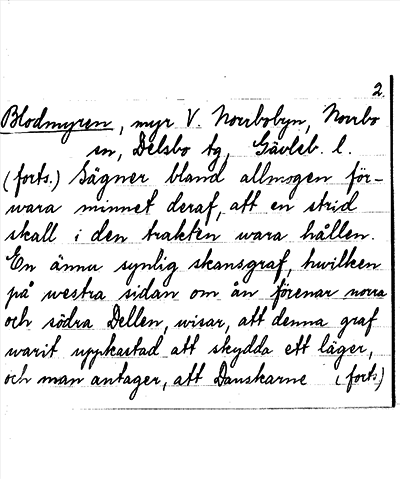 2.
Blodmyren, myr V. Norrbobyn, Norrbo
sn, Delsbo tg, Gävleb. l.
(forts.) Sägner bland allmogen för-
wara minnet deraf, att en strid
skall i den trakten wara hållen.
En ännu synlig skansgraf, hwilken
på westra sidan om ån förenar norra
och södra Dellen, wisar, att denna graf
warit uppkastad att skydda ett läger,
och man antager, att Danskarne (forts)